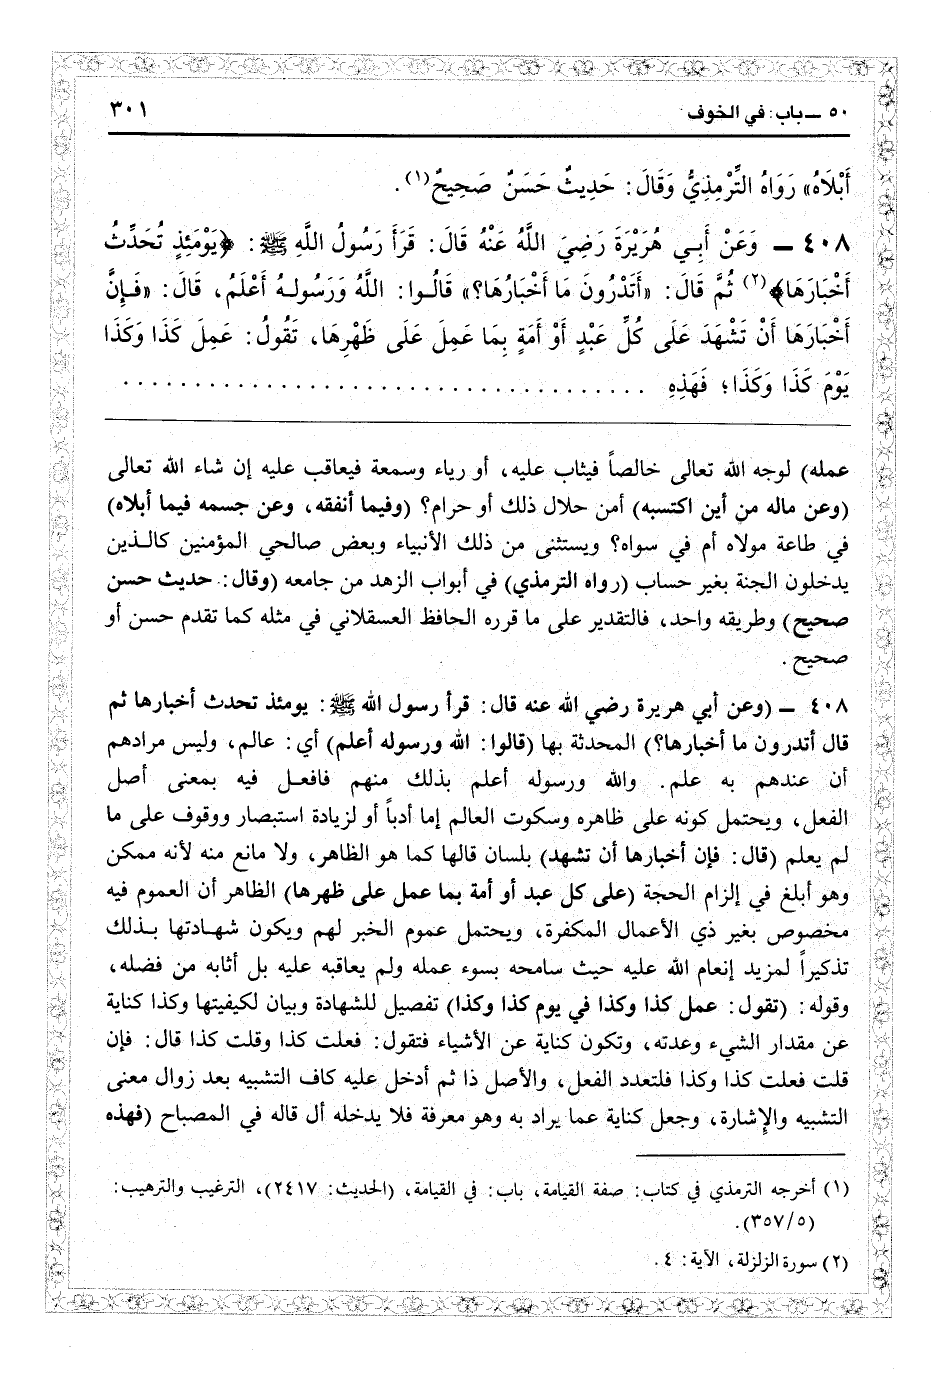 ٥٠ ـ باب: في الخوف ٣٠١
أَبْلَاهُ» رَوَاهُ التِّرْمِذِيُّ وَقَالَ: حَدِيثٌ حَسَنٌ صَحِيحٌ(١).
٤٠٨ ـ وَعَنْ أَبِي هُرَيْرَةَ رَضِيَ اللَّهُ عَنْهُ قَالَ: قَرَأَ رَسُولُ اللَّهِ ﷺ: ﴿يَوْمَئِذٍ تُحَدِّثُ
أَخْبَارَهَا﴾(٢) ثُمَّ قَالَ: «أَتَدْرُونَ مَا أَخْبَارُهَا؟» قَالُوا: اللَّهُ وَرَسُولُهُ أَعْلَمُ، قَالَ: «فَإِنَّ
أَخْبَارَهَا أَنْ تَشْهَدَ عَلَى كُلِّ عَبْدٍ أَوْ أَمَةٍ بِمَا عَمِلَ عَلَى ظَهْرِهَا، تَقُولُ: عَمِلَ كَذَا وَكَذَا
يَوْمَ كَذَا وَكَذَا؛ فَهَذِهِ .....................................
عمله) لوجه الله تعالى خالصاً فيثاب عليه، أو رياء وسمعة فيعاقب عليه إن شاء الله تعالى
(وعن ماله من أين اكتسبه) أمن حلال ذلك أو حرام؟ (وفيما أنفقه، وعن جسمه فيما أبلاه)
في طاعة مولاه أم في سواه؟ ويستثنى من ذلك الأنبياء وبعض صالحي المؤمنين كالذين
يدخلون الجنة بغير حساب (رواه الترمذي) في أبواب الزهد من جامعه (وقال: حديث حسن
صحيح) وطريقه واحد، فالتقدير على ما قرره الحافظ العسقلاني في مثله كما تقدم حسن أو
صحيح.
٤٠٨ ـ (وعن أبي هريرة رضي الله عنه قال: قرأ رسول الله ﷺ: يومئذ تحدث أخبارها ثم
قال أتدرون ما أخبارها؟) المحدثة بها (قالوا: الله ورسوله أعلم) أي: عالم، وليس مرادهم
أن عندهم به علم. والله ورسوله أعلم بذلك منهم فافعل فيه بمعنى أصل
الفعل، ويحتمل كونه على ظاهره وسكوت العالم إما أدباً أو لزيادة استبصار ووقوف على ما
لم يعلم (قال: فإن أخبارها أن تشهد) بلسان قالها كما هو الظاهر، ولا مانع منه لأنه ممكن
وهو أبلغ في إلزام الحجة (على كل عبد أو أمة بما عمل على ظهرها) الظاهر أن العموم فيه
مخصوص بغير ذي الأعمال المكفرة، ويحتمل عموم الخبر لهم ويكون شهادتها بذلك
تذكيراً لمزيد إنعام الله عليه حيث سامحه بسوء عمله ولم يعاقبه عليه بل أثابه من فضله،
وقوله: (تقول: عمل كذا وكذا في يوم كذا وكذا) تفصيل للشهادة وبيان لكيفيتها وكذا كناية
عن مقدار الشيء وعدته، وتكون كناية عن الأشياء فتقول: فعلت كذا وقلت كذا قال: فإن
قلت فعلت كذا وكذا فلتعدد الفعل، والأصل ذا ثم أدخل عليه كاف التشبيه بعد زوال معنى
التشبيه والإشارة، وجعل كناية عما يراد به وهو معرفة فلا يدخله أل قاله في المصباح (فهذه
(١) أخرجه الترمذي في كتاب: صفة القيامة، باب: في القيامة، (الحديث: ٢٤١٧)، الترغيب والترهيب:
(٣٥٧/٥).
(٢) سورة الزلزلة، الآية: ٤.